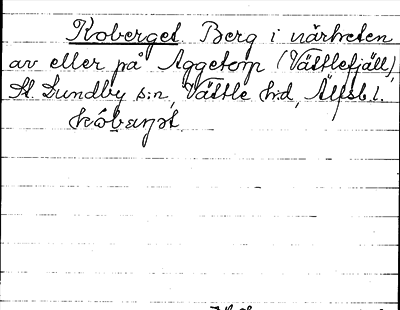 Koberget Berg i närheten
av eller på Aggetorp (Vättlefjäll),
St. Lundby s:n, Vättle hd, Älfsb. l.